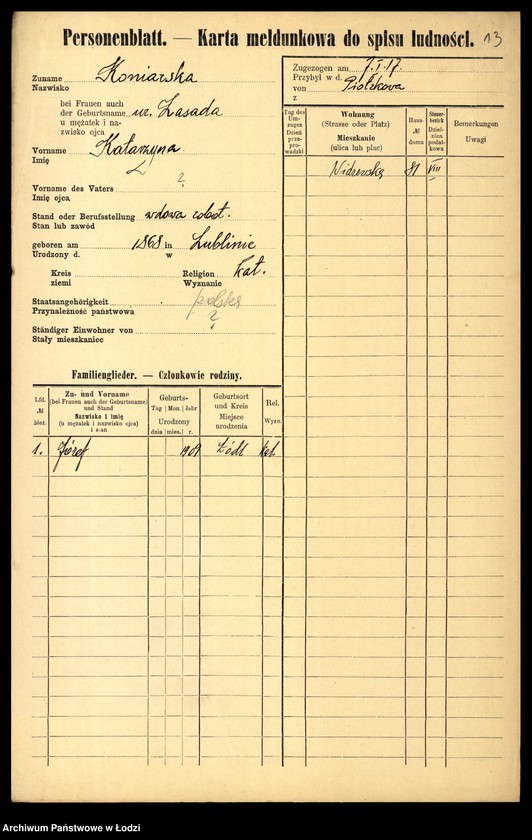 Personenblatt. — Karta meldunkowa do spisu ludności. 13
Zuname Koniarska
Nazwisko
bei Frauen auch
der Geburtsname ur. Zasada
u mężatek i na-
zwisko ojca
Vorname Katarzyna
Imię
Vorname des Vaters ?
Imię ojca
Stand oder Berufsstellung wdowa robot.
Stan lub zawód
geboren am 1868 in Lublinie
Urodzony d. w
Kreis Religion kat.
ziemi Wyznanie
Staatsangehörigkeit polska
Przynależność państwowa ?
Ständiger Einwohner von
Stały mieszkaniec
Zugezogen am 7.I.17.
Przybył w d.
von Piotrkowa
z
Tag des Um-zuges Dzień prze-prowadzki
Wohnung
(Strasse oder Platz)
Mieszkanie
(ulica lub plac)
Haus-№ domu
Steuer-bezirk Dziel-nica podat-kowa
Bemerkungen
Uwagi
81 VIII
Familienglieder. — Członkowie rodziny.
Lfd. № bież.
Zu- und Vorname
(bei Frauen auch der Geburtsname)
und Stand
Nazwisko i imię
(u mężatek i nazwisko ojca)
i stan
Geburts-
Tag Mon. Jahr
Urodzony
dnia mies. r.
Geburtsort
und Kreis
Miejsce
urodzenia
Rel.
Wyzn.
1. Józef 1909 Łódź kat.
Archiwum Państwowe w Łodzi